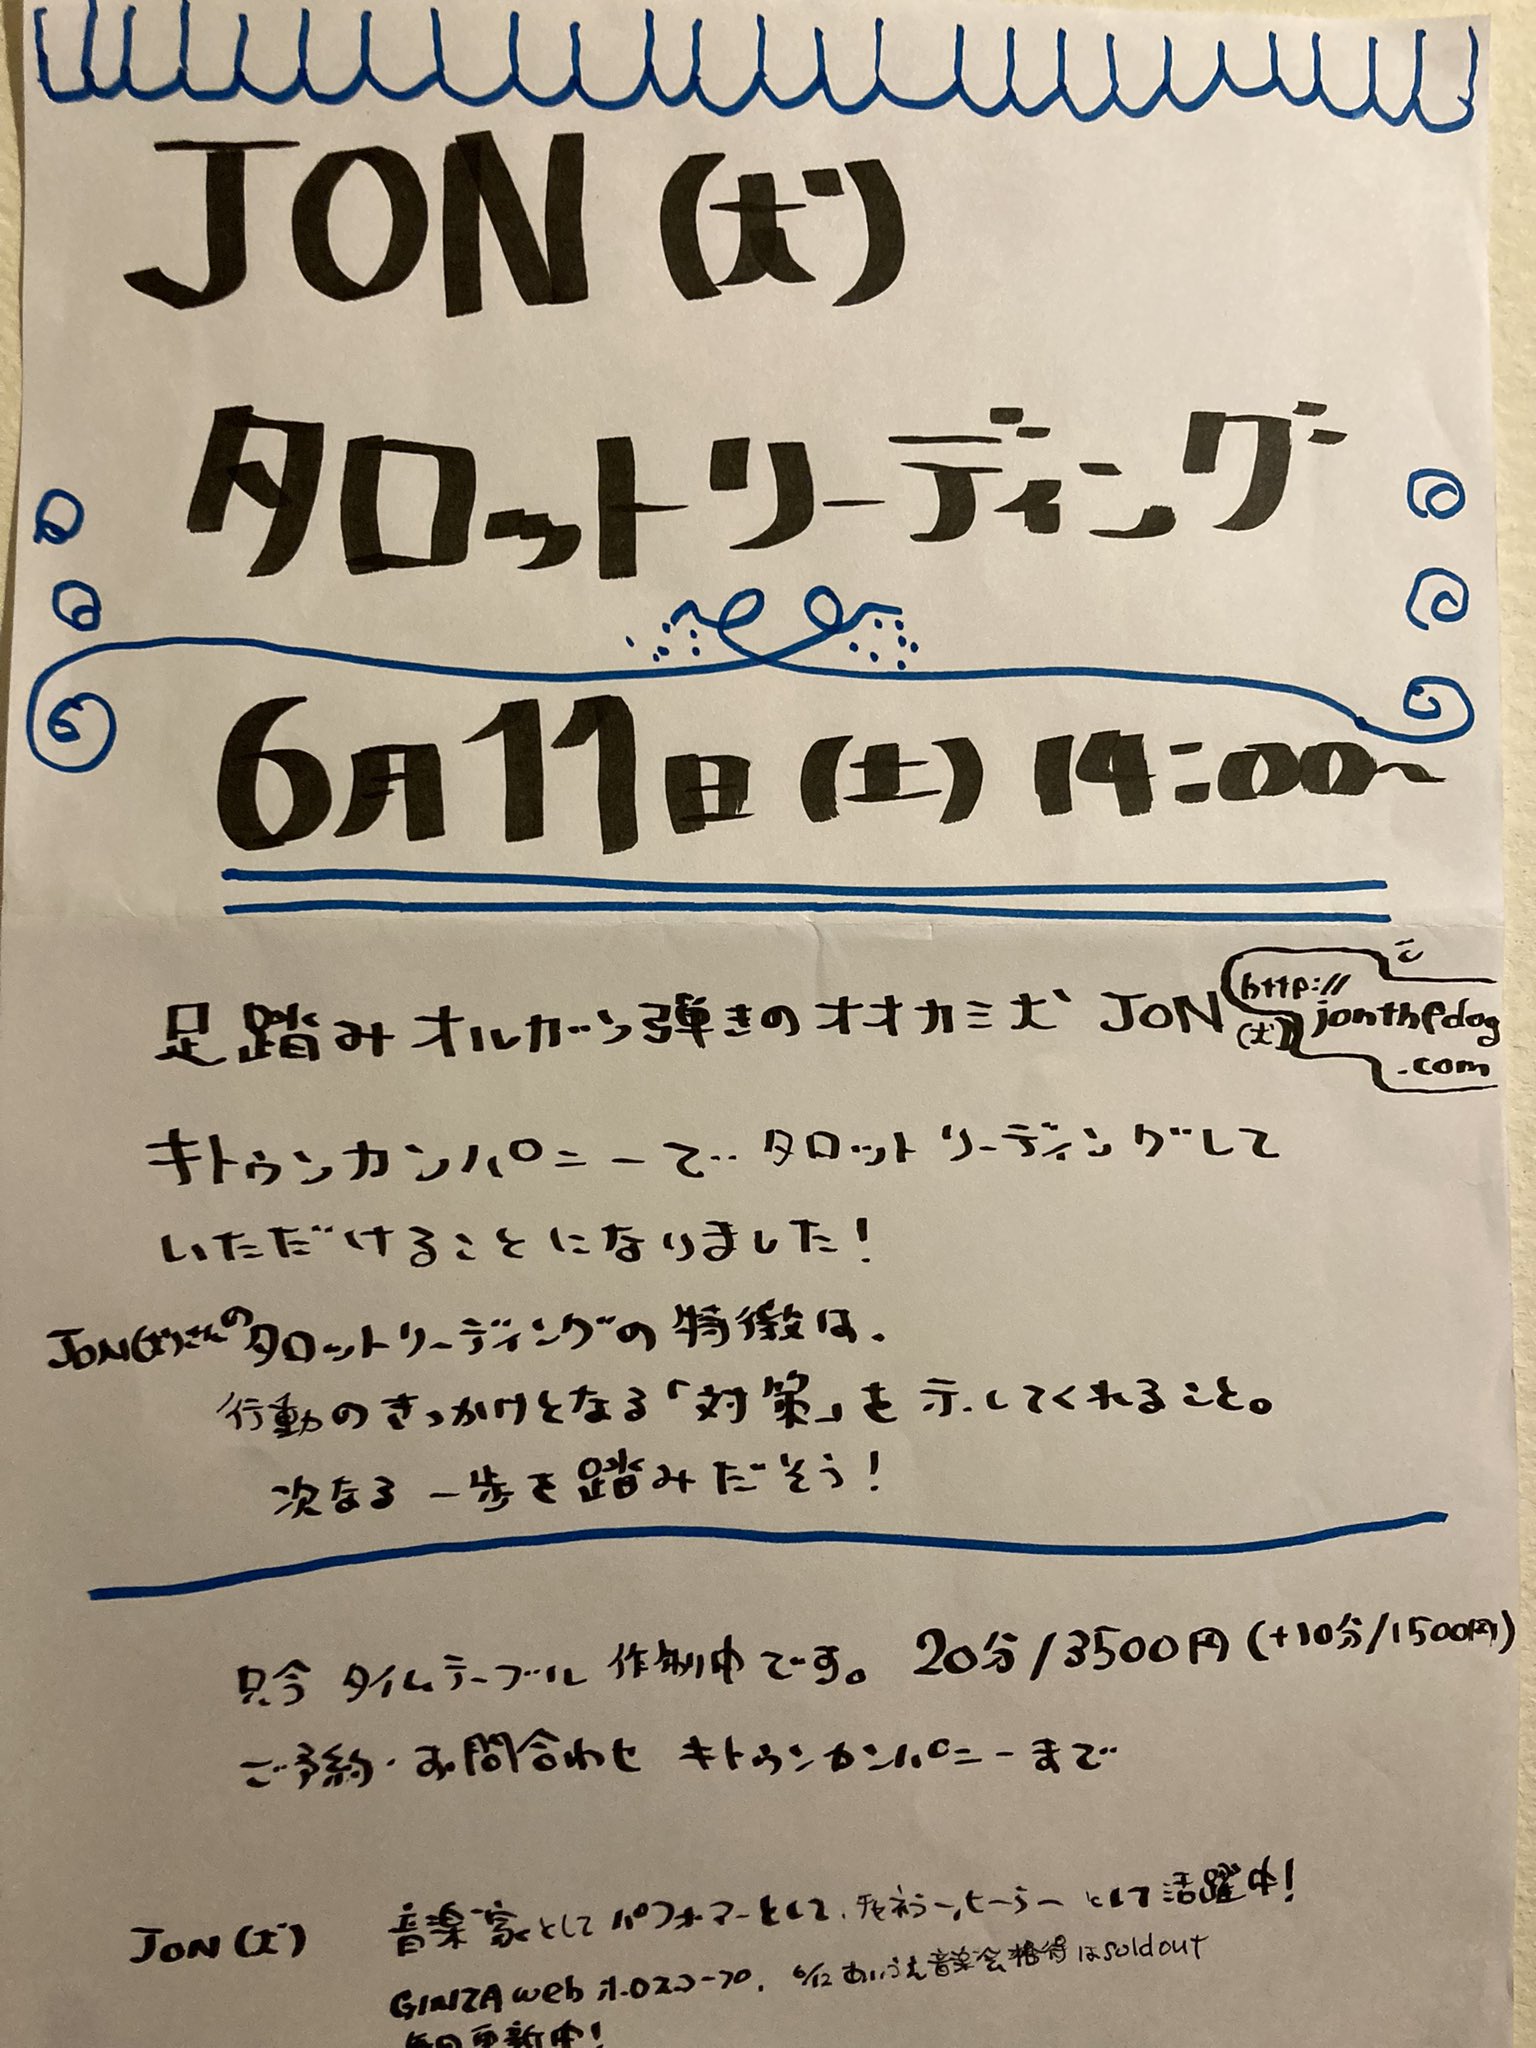 JON(犬)
タロットリーディング
6月11日(土)14:00〜
足踏みオルガン弾きのオオカミ犬 JON(犬)
http://
jonthedog
.com
キトゥンカンパニーで タロットリーディングして
いただけることになりました!
JON(犬)さんのタロットリーディングの特徴は、
行動のきっかけとなる「対策」を示してくれること。
次なる一歩を踏みだそう!
只今 タイムテーブル 作制中です。 20分/3500円(+10分/1500円)
ご予約・お問合わせ キトゥンカンパニーまで
JON(犬) 音楽家としてパフォーマーとして、 ヒーラーとして活躍中!
GINZA web 6/12 あいうえ音楽会 はsold out
毎日更新中!